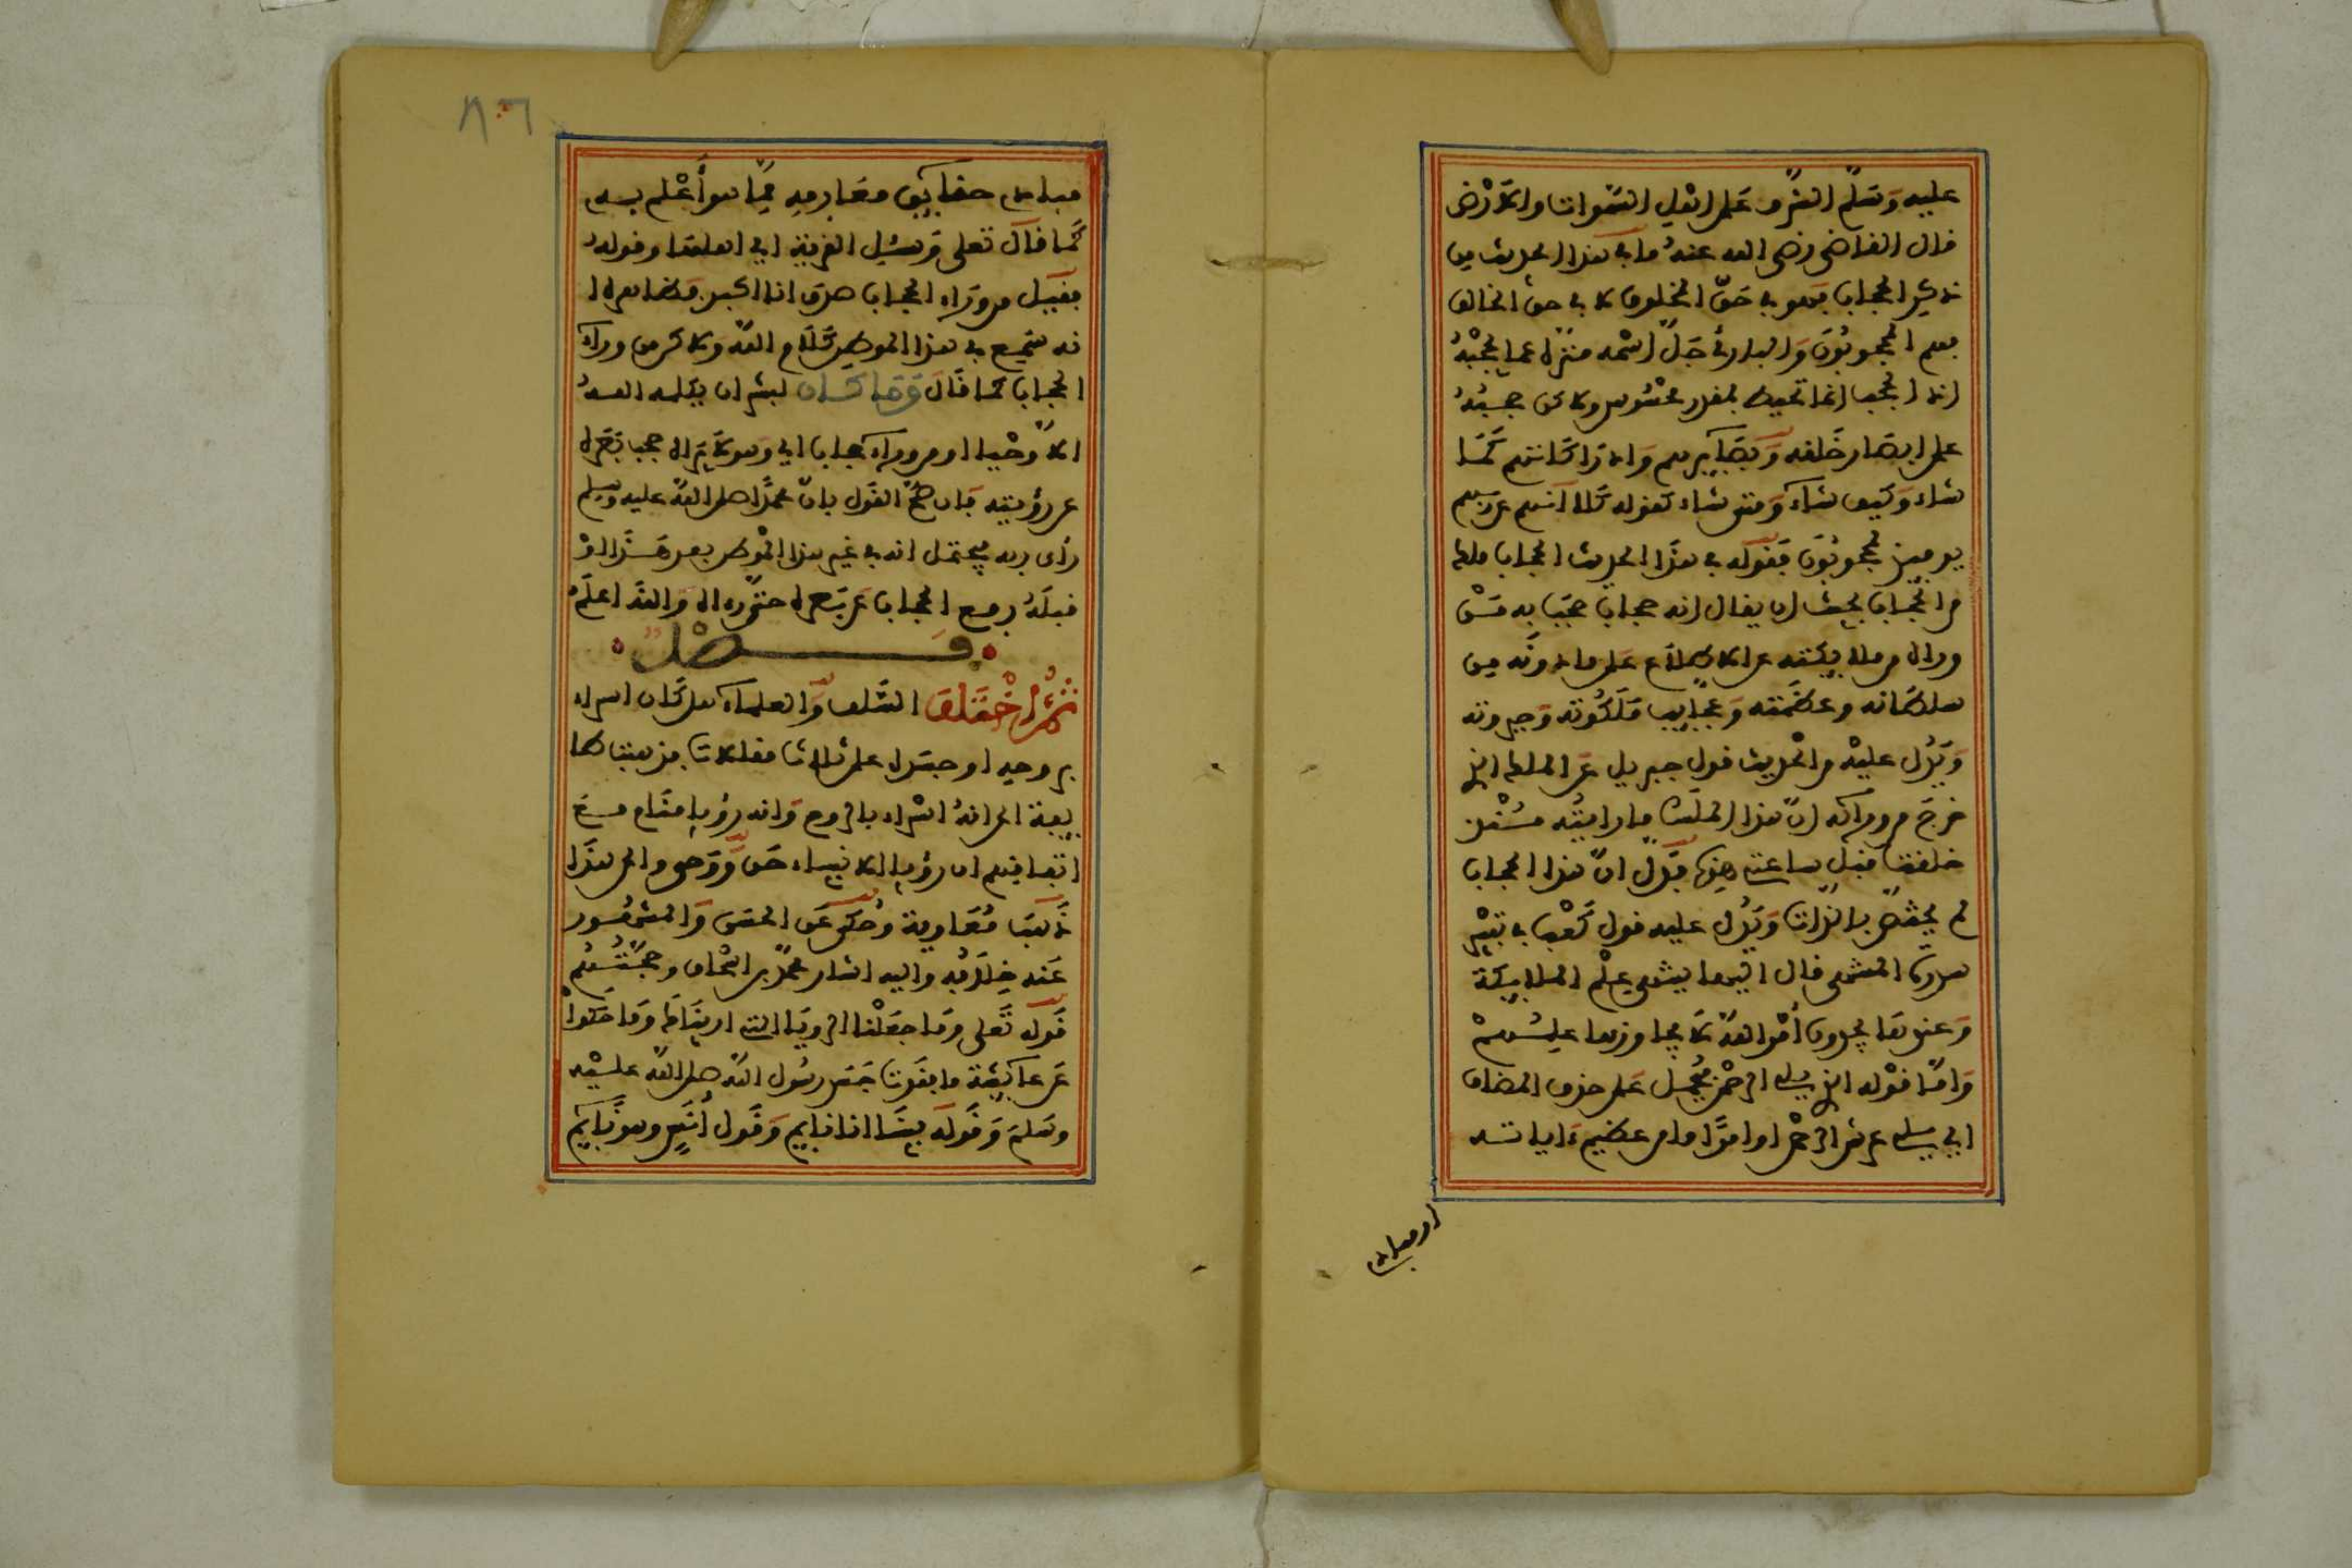 عليه وسلم الشرف على اهل السموات والارض
قال القاضي رضي الله عنه ما في هذا الحديث من
ذكر الحجاب فهو في حق المخلوق لا في حق الخالق
فهم المحجوبون والباري جل اسمه منزه عما يحجبه
اذ الحجب انما تحيط بمقدر محسوس ولاكن حجبه
على ابصار خلقه وبصايرهم وادراكاتهم بما
شاء وكيف شاء ومتى شاء كقوله كلا انهم عن ربهم
يوميذ لمحجوبون فقوله في هذا الحديث الحجاب واذ خرج ملك
من الحجاب يجب ان يقال انه حجاب حجب به من
وراءه من ملايكته عن الاطلاع على ما دونه من
سلطانه وعظمته وعجايب ملكوته وجبروته
ويدل عليه من الحديث قول جبريل عن الملك الذي
خرج من ورايه ان هذا الملك ما رايته منذ
خلقت قبل ساعتي هذه فدل ان هذا الحجاب
لم يختص بالذات ويدل عليه قول كعب في تفسير
سدرة المنتهى قال اليها ينتهي علم الملايكة
وعندها يجدون امر الله لا يجاوزها علمهم
واما قوله الذي يلي الرحمن فيحمل على حذف المضاف
اي يلي عرش الرحمن او امرا ما من عظيم ءاياته
او مبادي
مبادي حقايق معارفه مما هو أعلم به
كما قال تعلى وسئل القرية اي اهلها وقوله
فقيل من وراء الحجاب صدق انا اكبر فظاهره ا
نه سمع في هذا الموطن كلام الله ولاكن من وراء
الحجاب كما قال وما كان لبشر ان يكلمه الله
الا وحيا او من وراء حجاب اي وهو لا يراه حجب بصره
عن رؤيته فان صح القول بان محمدا صلى الله عليه وسلم
رأى ربه فيحتمل انه في غير هذا الموطن بعد هذا او
قبله رفع الحجاب عن بصره حتى رءاه والله اعلم
فصل
ثم اختلف السلف والعلماء هل كان اسراء
بروحه او جسده على ثلاث مقالات فذهبت طا
يفة الى انه اسراء بالروح وانه رؤيا منام مع
اتفاقهم ان رؤيا الانبياء حق ووحي والى هذا
ذهب معاوية وحكي عن الحسن والمشهور
عنه خلافه واليه اشار محمد بن اسحاق وحجتهم
قوله تعلى وما جعلنا الرويا التي اريناك وما حكوا
عن عايشة ما فقدت جسد رسول الله صلى الله عليه
وسلم وقوله بينا انا نايم وقول أنس وهو نايم